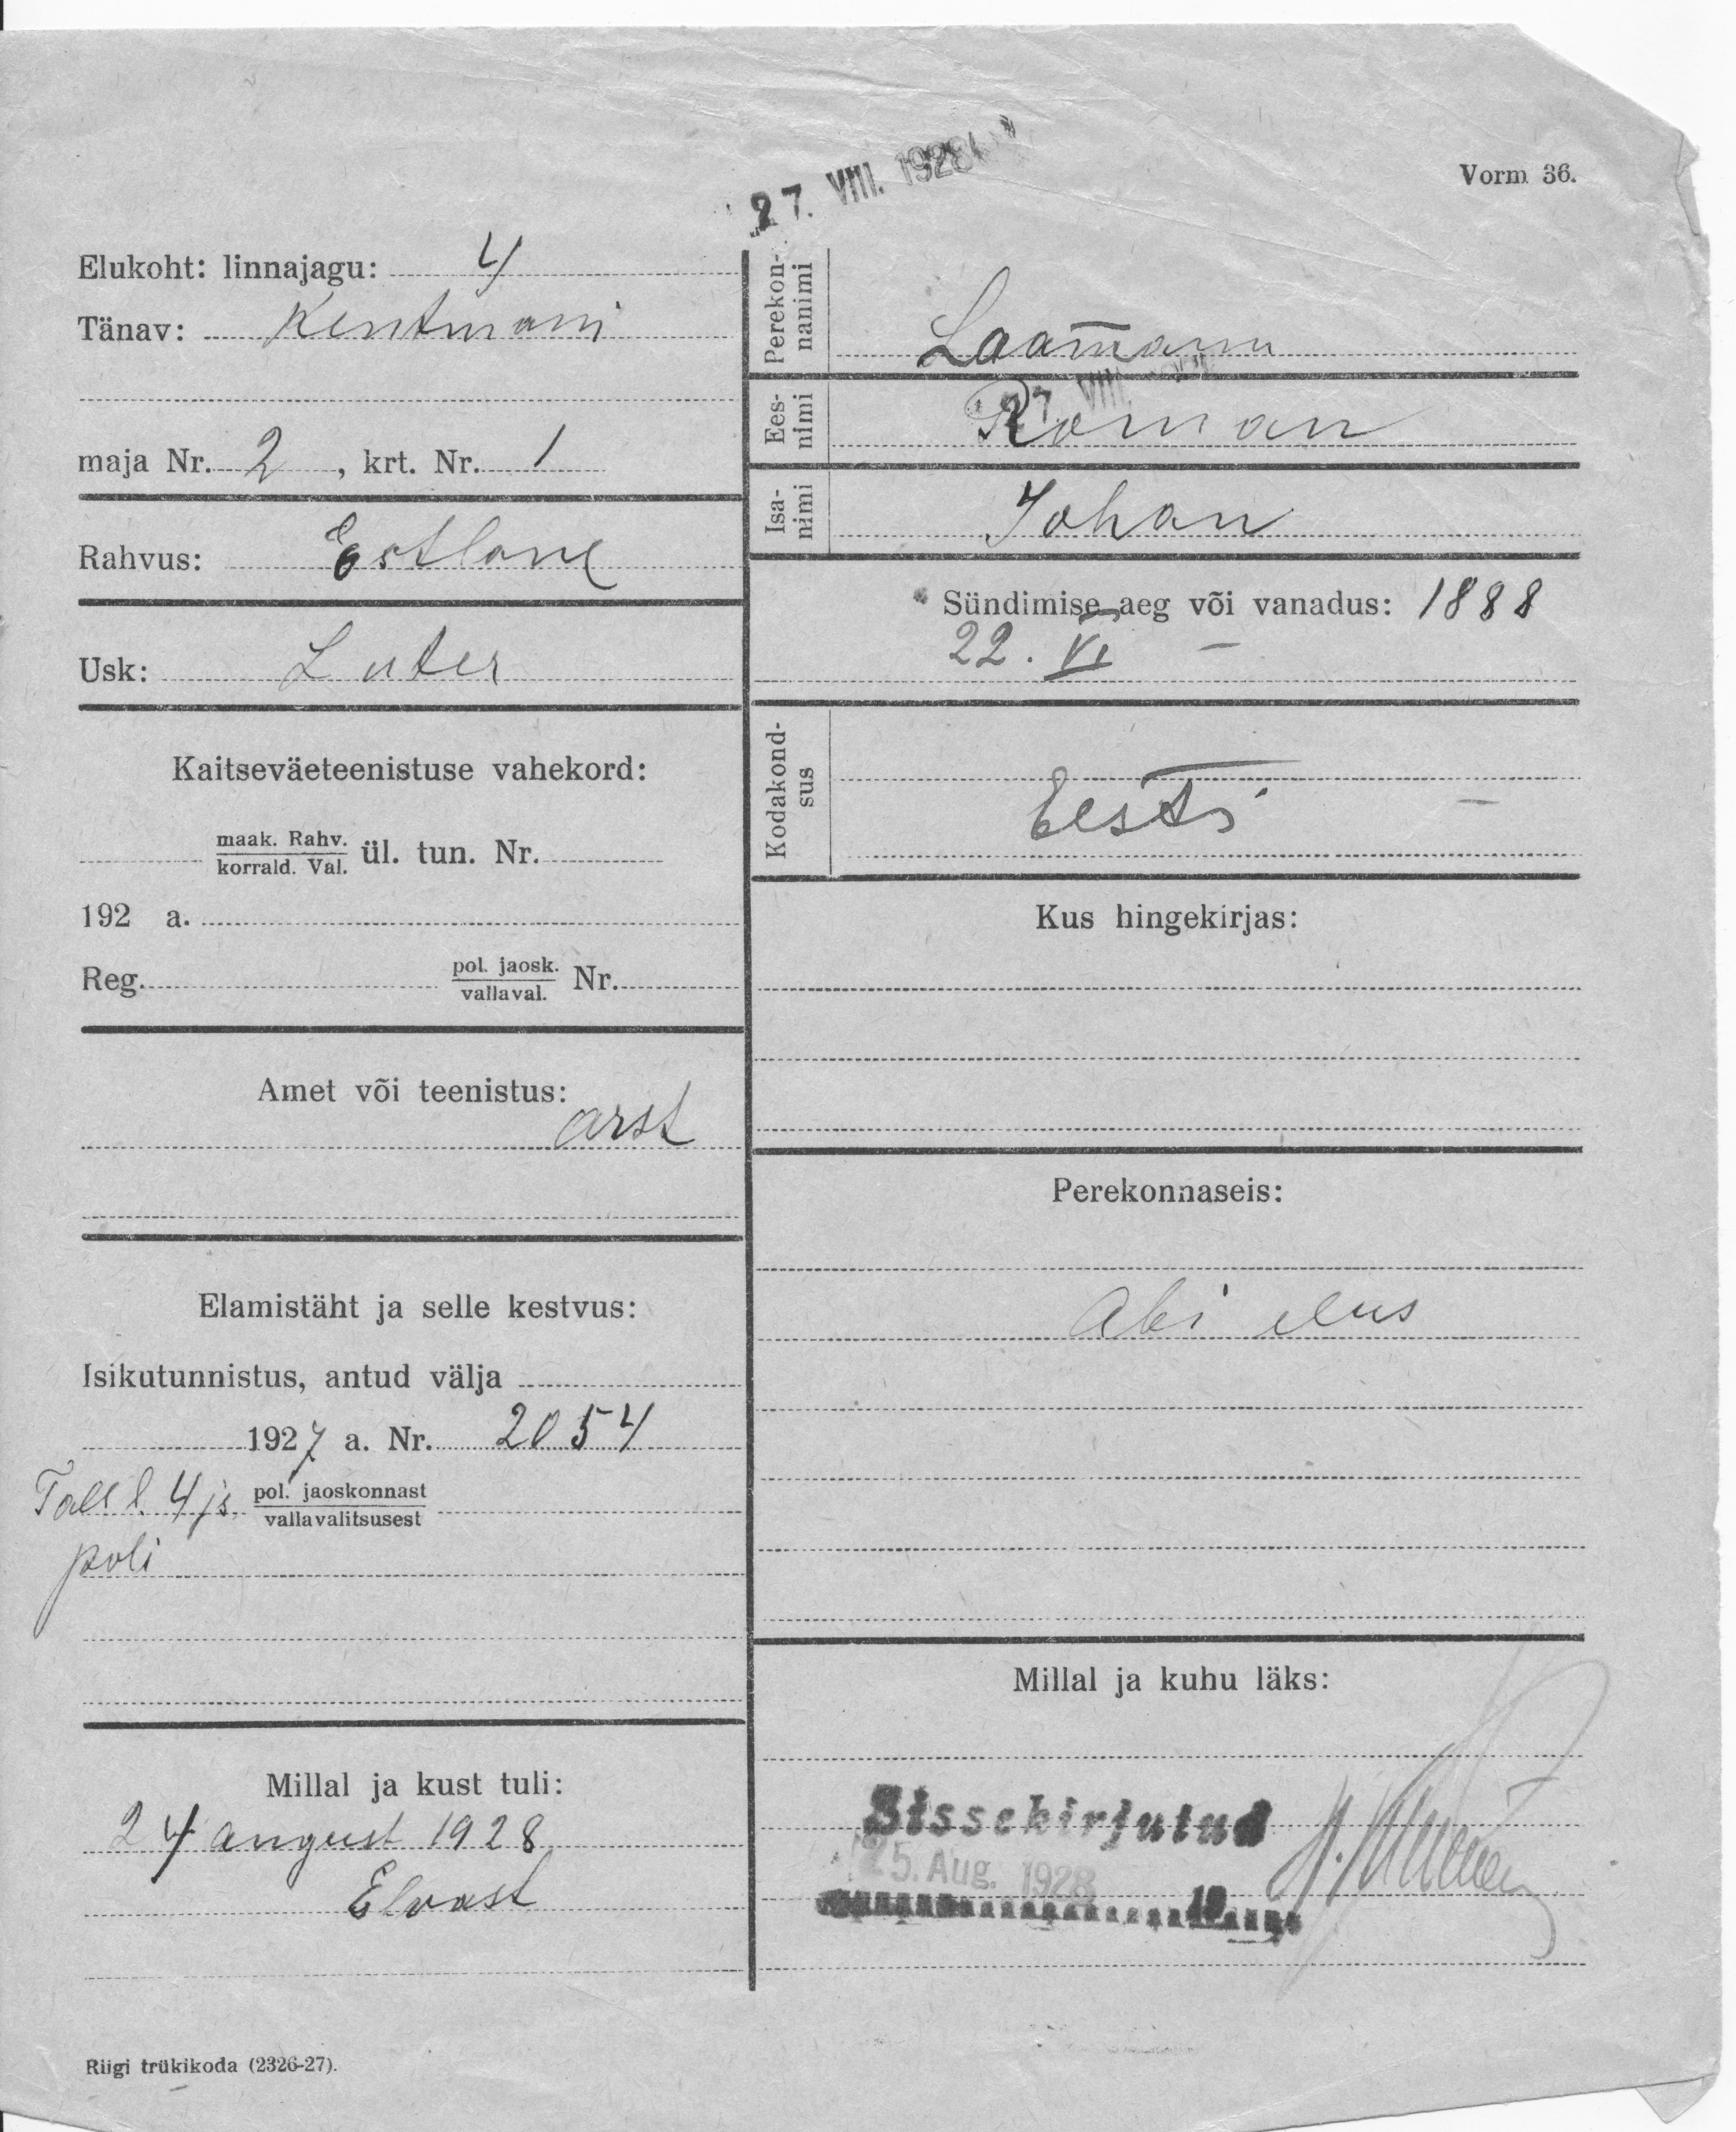 27. VIII. 1928
Vorm 36.
Elukoht: linnajagu: 4
Tänav: Kentmani
maja Nr. 2, krt. Nr. 1
Rahvus: Estlane
Usk: Luter
Kaitseväeteenistuse vahekord:
maak. Rahv.
korrald. Val. ül. tun. Nr.
192 a.
Reg. pol. jaosk.
vallaval. Nr.
Amet või teenistus:
arst
Elamistäht ja selle kestvus:
Isikutunnistus, antud välja
1927 a. Nr. 2054
Tall l. 4 js. pol. jaoskonnast
vallavalitsusest
poli
Millal ja kust tuli:
24 august 1928
Elvast
Riigi trükikoda (2326-27).
Perekon-
nanimi
Laamann
27 VIII
Ees-
nimi
Roman
Isa-
nimi
Johan
Sündimise aeg või vanadus: 1888
22. VI –
Kodakond-
sus
Eesti –
Kus hingekirjas:
Perekonnaseis:
Abielus
Millal ja kuhu läks:
Sissekirjutud
25. Aug. 1928
19